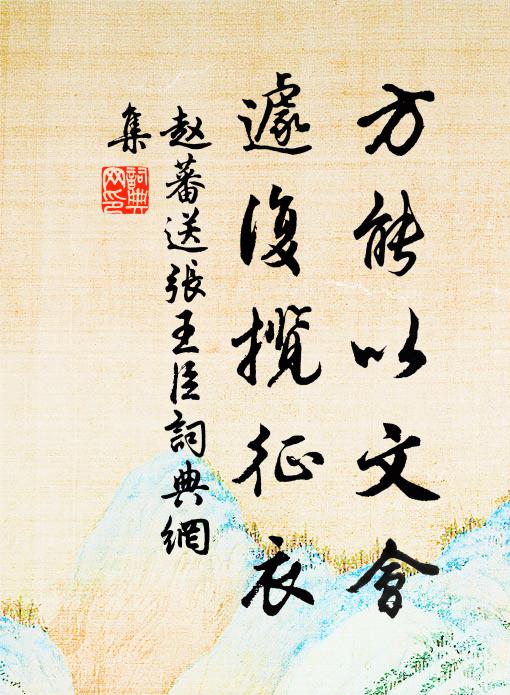 方能以文會
遽復攬征衣
赵蕃送張王臣詞典網
集
詞典網印